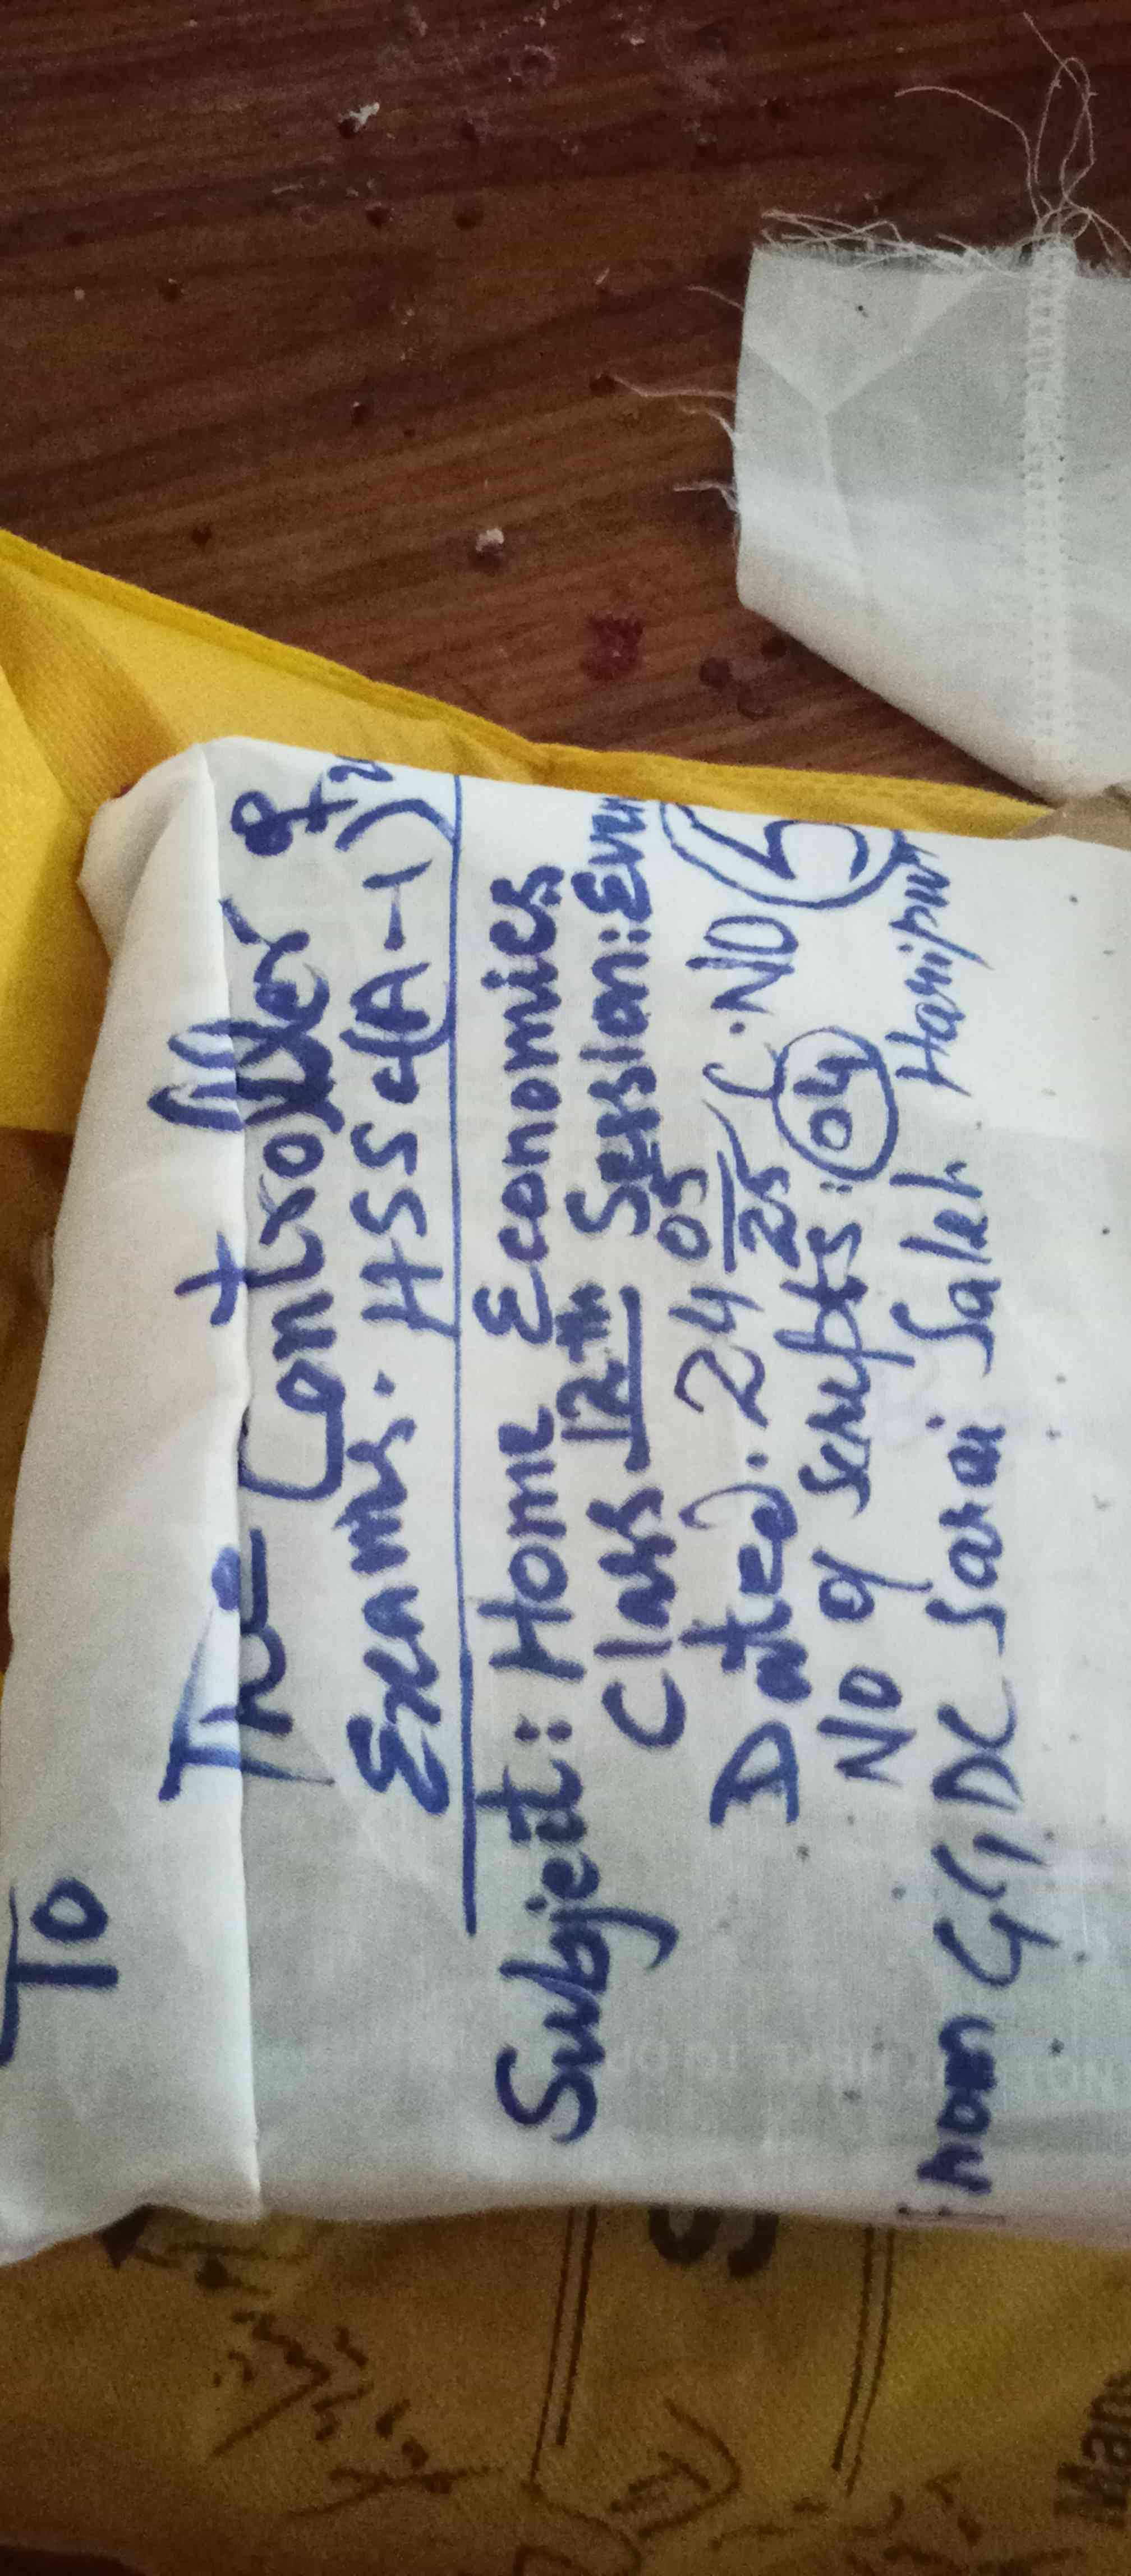 To
The Controller of
Exams. HSSC (A-I)
Subject: Home Economics
Class 12th Session: Even
Dated. 24/05/25 C.NO 5
No of scripts: 04
From GGDC Sarai Saleh Haripur